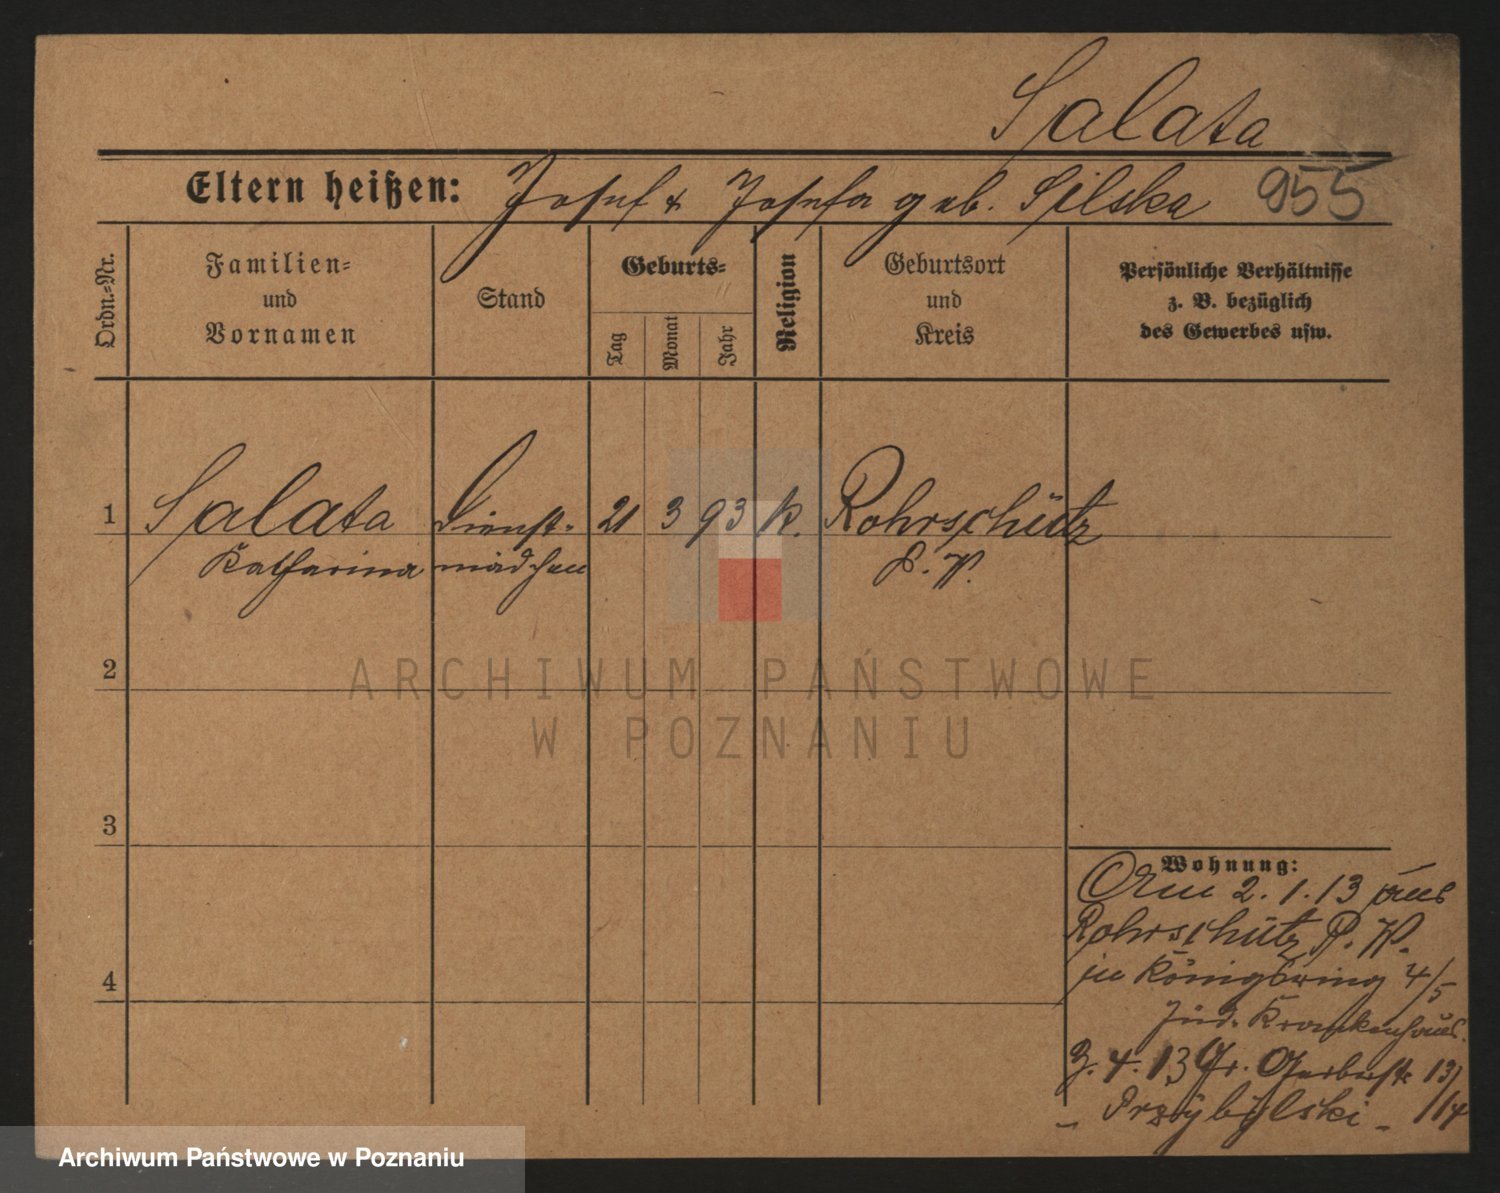 Salata
Eltern heißen: Josef & Josefa geb. Silska 955
Ordn.-Nr.
Familien-
und
Vornamen
Stand
Geburts-
Tag
Monat
Jahr
Religion
Geburtsort
und
Kreis
Persönliche Verhältnisse
z. B. bezüglich
des Gewerbes usw.
1 Salata Dienst- 21 3 93 k. Rohrschütz
Katharina mädchen P. W.
2
ARCHIWUM PAŃSTWOWE
W POZNANIU
3
Wohnung:
2.1.13 aus
Rohrschütz P. W.
in Königsring 4/5
4
Jüd. Krankenhaus.
4.13 Gr. Gerberstr 13/
- Przybylski - 114
Archiwum Państwowe w Poznaniu